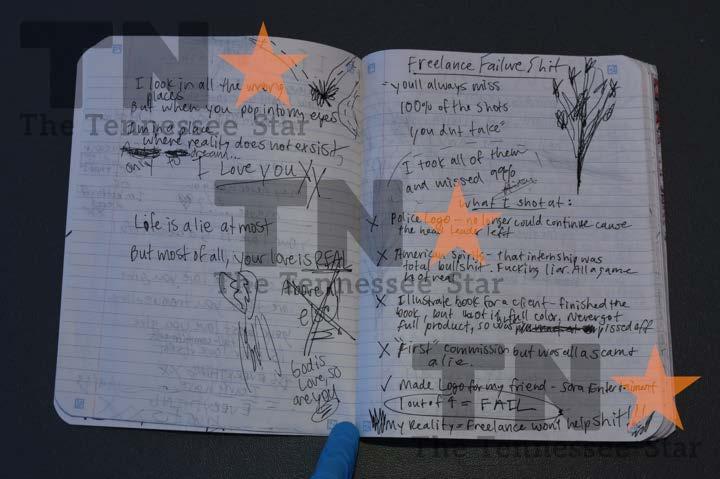 I look in all the wrong
places
But when you pop into my eyes
I am in a place
where reality does not exsist,
only to dream...
I Love you XX
Life is a lie at most
But most of all, your love is REAL
Above
God is
Love, so
are you
Freelance Failure Shit
"youll always miss
100% of the shots
you dnt take"
I took all of them
and missed 99%
What I shot at:
X Police Logo - no longer could continue cause
the head leader left
X American Spirits - that internship was
total bullshit. Fucking liar. All a game
not real
X Illustrate book for a client - finished the
book, but not in full color. Never got
full product, so was pissed off
X "First" commission but was all a scam &
a lie.
✓ Made Logo for my friend - Sora Entertainment
1 out of 4 = FAIL
My Reality = Freelance won't help shit!!
TN
The Tennessee Star
TN
The Tennessee Star
TN
The Tennessee Star